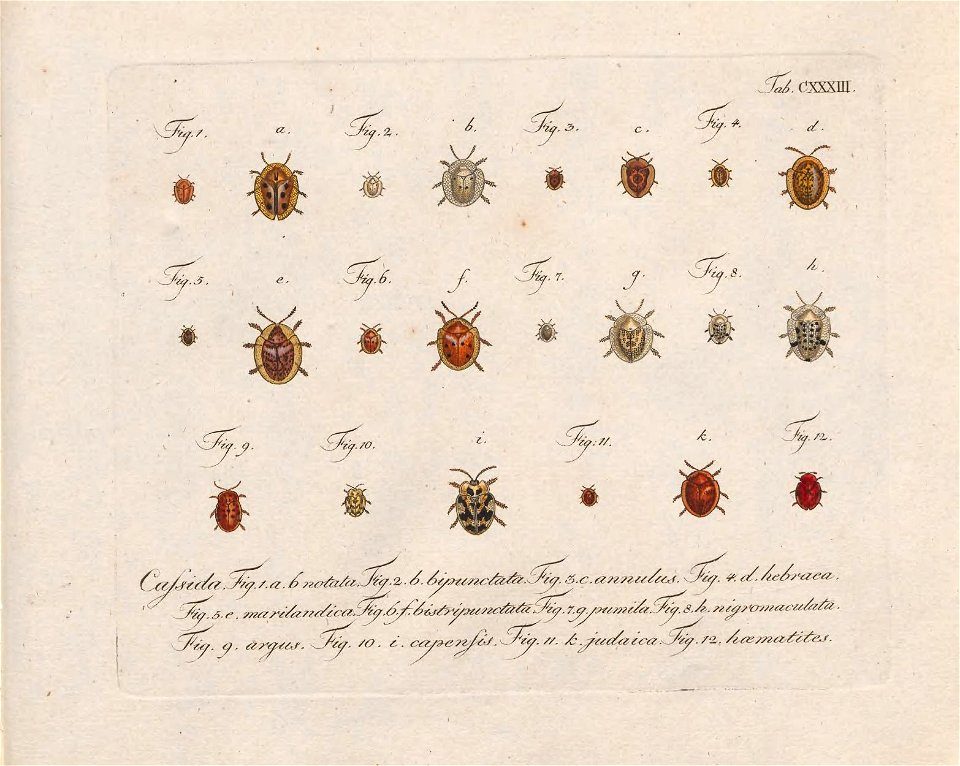 Tab. CXXXIII.
Fig. 1. a. Fig. 2. b. Fig. 3. c. Fig. 4. d.
Fig. 5. e. Fig. 6. f. Fig. 7. g. Fig. 8. h.
Fig. 9. Fig. 10. i. Fig. 11. k. Fig. 12.
Caſsida. Fig. 1. a. 6 notata. Fig. 2. b. bipunctata. Fig. 3. c. annulus. Fig. 4. d. hebraea.
Fig. 5. e. marilandica. Fig. 6. f. bistripunctata. Fig. 7. g. pumila. Fig. 8. h. nigromaculata.
Fig. 9. argus. Fig. 10. i. capenſis. Fig. 11. k. judaica. Fig. 12. hæmatites.